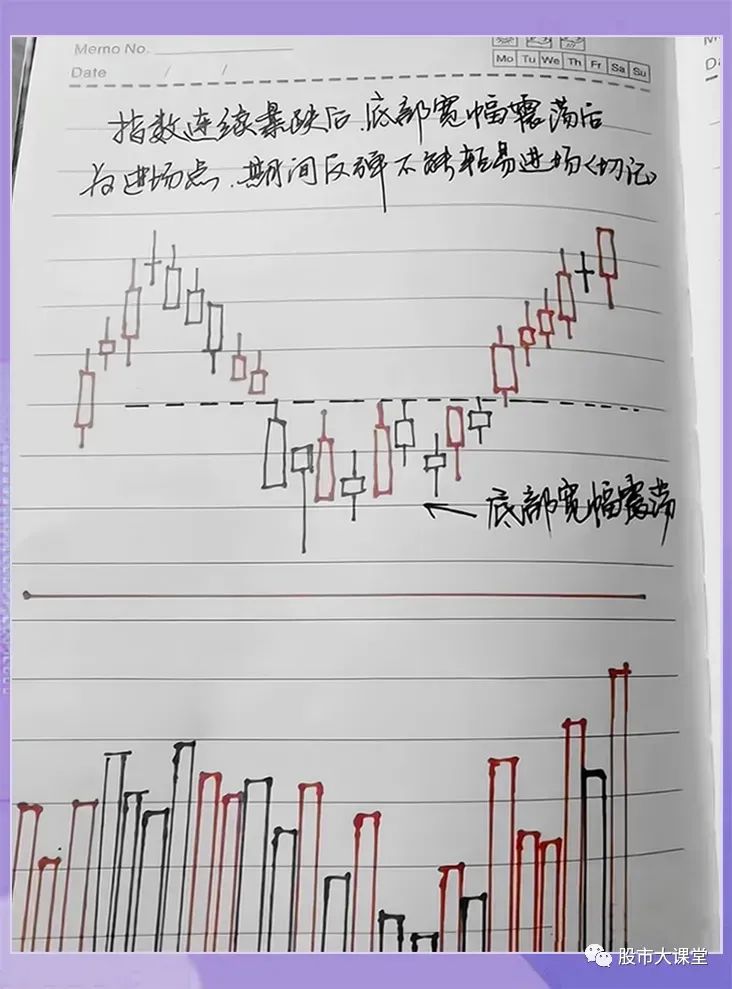 Memo No.
Mo Tu We Th Fr Sa Su
Date / /
指数连续暴跌后.底部宽幅震荡后
为进场点.期间反弹不能轻易进场(切记)
底部宽幅震荡
股市大课堂